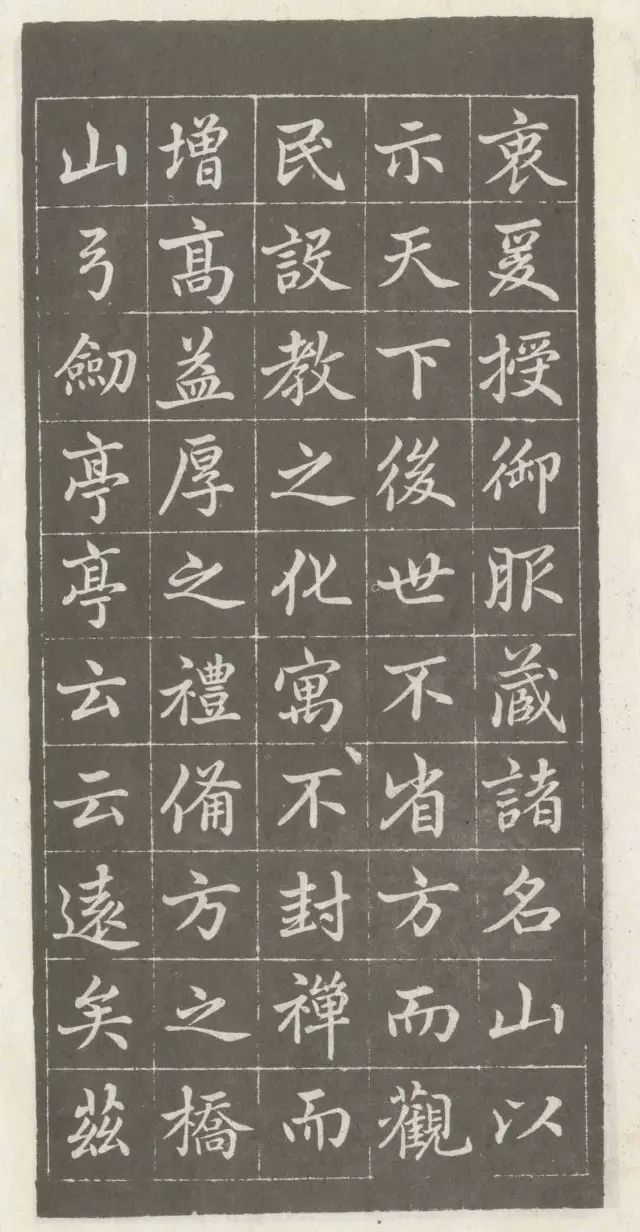 衷爰授御服藏諸名山以
示天下後世不省方而觀
民設教之化寓不封禪而
增髙益厚之禮備方之橋
山弓劒亭亭云云遠矣茲